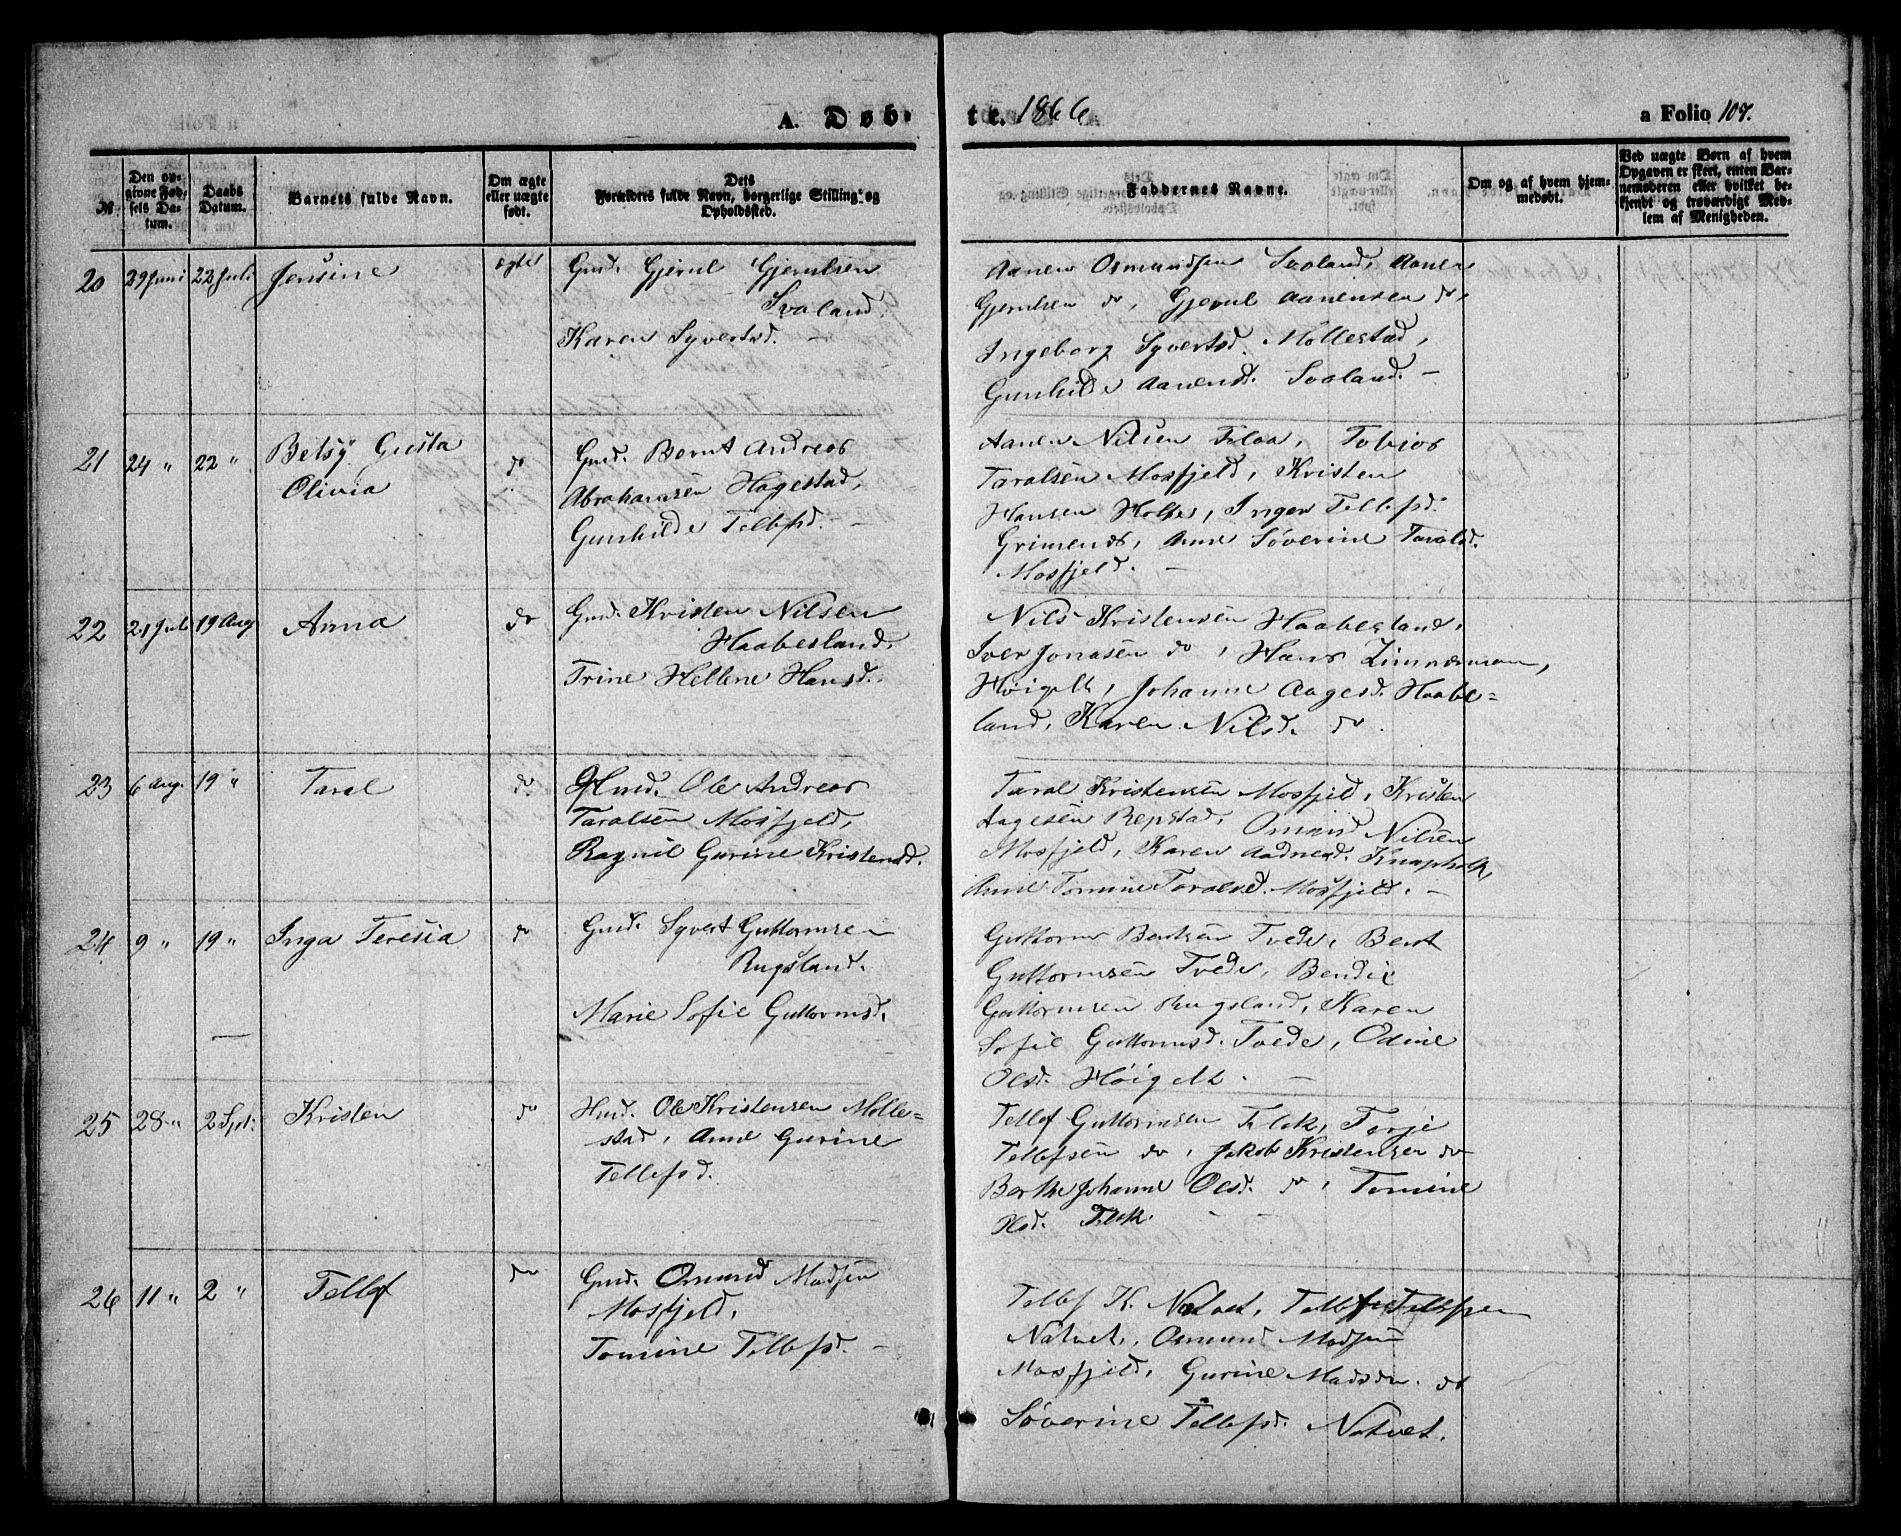 A. Døb-
te. 1866
a Folio 107.
№
Den op-
givne Fød-
sels Da-
tum.
Daabs
Datum.
Barnets fulde Navn.
Om ægte
eller uægte
født.
Dets
Forældres fulde Navn, borgerlige Stilling og
Opholdssted.
Faddernes Navne.
Om og af hvem hjem-
medøbt.
Ved uægte Børn af hvem
Opgaven er skeet, enten Bar-
nemoderen eller hvilket be-
kjendt og troværdigt Med-
lem af Menigheden.
20 29 Juni 22 Juli Jensine ægte
Gmd. Gjerul Gjerulsen
Svaland.
Karen Syvertsd. —
Aanen Osmundsen Svaland, Aanen
Gjerulsen do, Gjerul Aanensen do,
Ingeborg Syvertsd. Mollestad,
Gunhilde Aanensd. Svaland. —
21 24 " 22 " Betsÿ Gusta do
Olivia
Gmd. Bernt Andreas
Abrahamsen Hagestad,
Gunhilde Tellefsd. —
Aanen Nilsen Flaa, Tobias
Taralsen Mosfjeld, Kristen
Hansen Inger Tellefsd.
Grimenes, Anne Søverine Taralsd.
Mosfjeld. —
22 21 Juli 19 Aug Anna do
Gmd. Kristen Nilsen
Haabesland,
Trine Hellene Hansd.
Nils Kristensen Haabesland,
Iver Jonasen do, Hans Zimmerman,
Høigelt, Johanne Aagesd. Haabe-
land, Karen Nilsd. do.
23 6 Aug. 19 " Taral do
Hmd. Ole Andreas
Taralsen Mosfjeld,
Ragnil Gurine Kristensd.
Taral Kristensen Mosfjeld, Kristen
Aagesen Repstad, Omund Nilsen
Mosfjeld, Karen Aadnesd. Knapholt,
Anne Tomine Taralsd. Mosfjeld. —
24 9 " 19 " Inga Teresia do
Gmd. Syvert Guttormsen
Rugsland.
Marie Sofie Guttormsd.
Guttorm Bentsen Tvede, Bent
Guttormsen Tvede, Bendix
Guttormsen Rugsland, Karen
Sofie Guttormsd. Tvede, Odine
Olsd. Høigelt. —
25 28 " 2 Spt. Kristen do
Hmd. Ole Kristensen Molle-
stad, Anne Gurine
Tellefsd.
Tellef Guttormsen Flak, Terje
Tellefsen do, Jakob Kristensen do
Berthe Johanne Olsd. do, Tomine
Olsd. Flak.
26 11 " 2 " Tellef do
Gmd. Omund Madsen
Mosfjeld,
Tomine Tellefsd. —
Tellef K. Natvet, Tellef Tellefsen
Natvet, Omund Madsen
Mosfjeld, Gurine Madsdr. do
Søverine Tellefsd. Natvet.